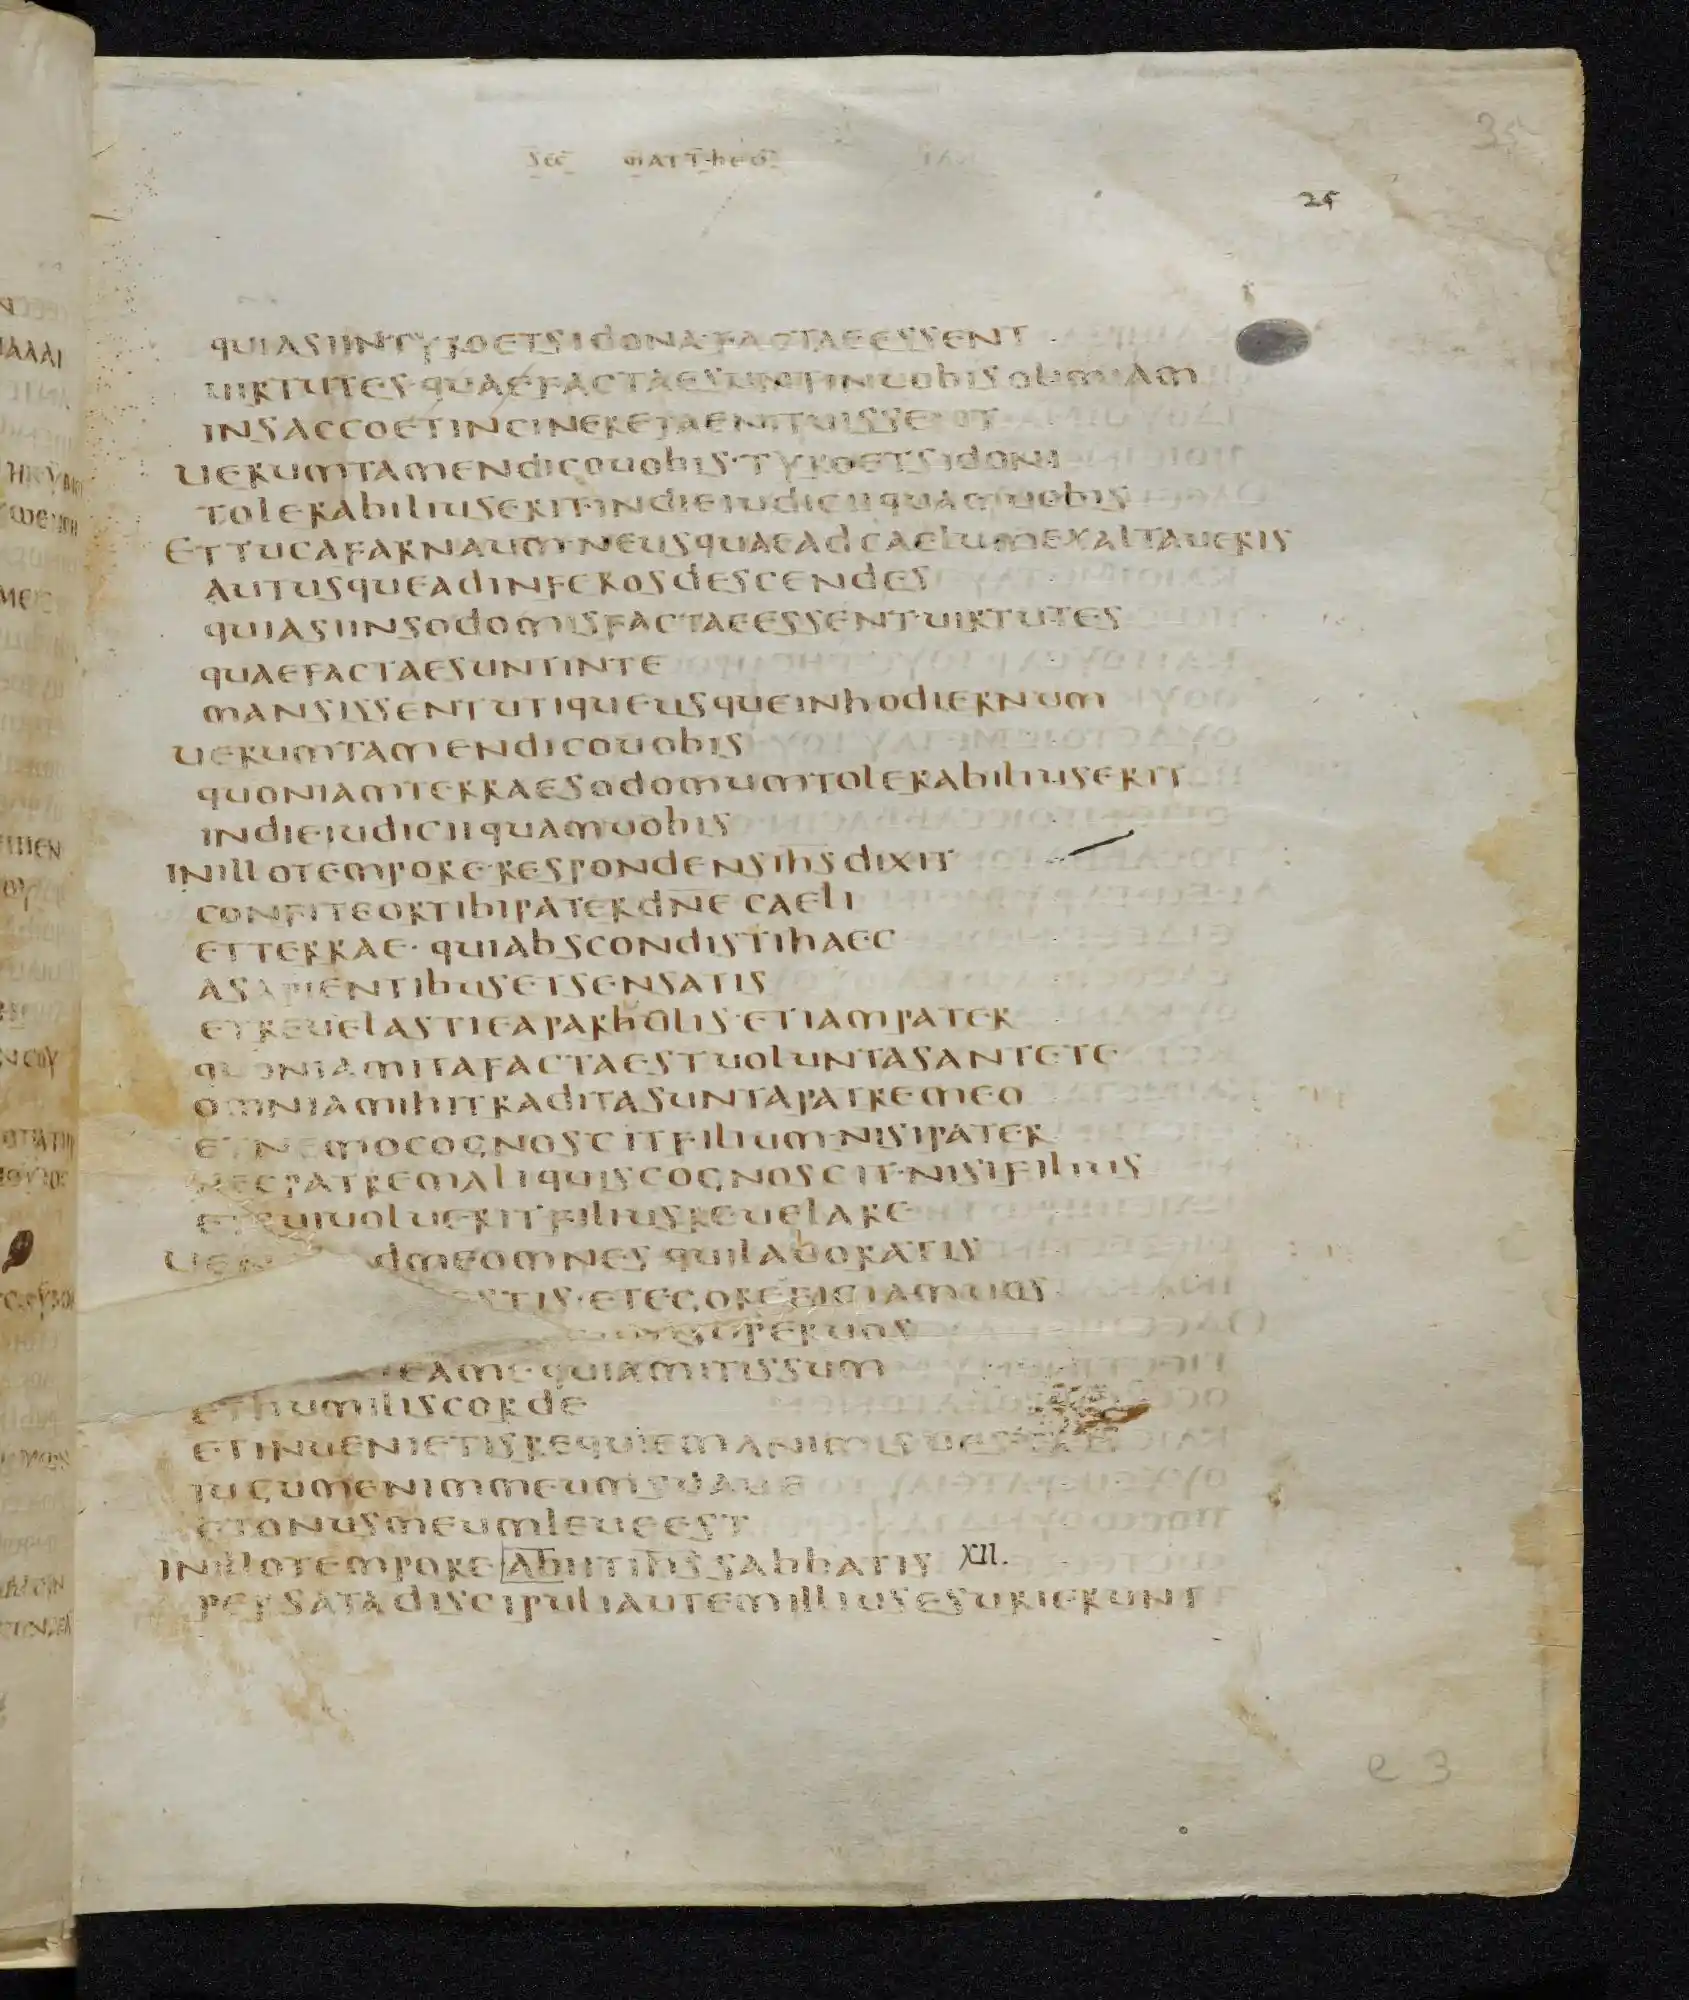 SEC MATTHEO
25
QUIASIINTYROETSIDONA·FACTAEESSENT
UIRTUTES·QUAEFACTAESUNTINUOBISOLIMUAM
INSACCOETINCINEREPAENITUISSENT
UERUMTAMENDICOUOBIS·TYROETSIDONI
TOLERABILIUSERITINDIEIUDICIIQUAMUOBIS
ETTUCAFARNAUM·NEUSQUAEADCAELUMEXALTAUERIS
AUTUSQUEADINFEROSDESCENDES
QUIASIINSODOMISFACTAEESSENTUIRTUTES
QUAEFACTAESUNTINTE
MANSISSENTUTIQUEUSQUEINHODIERNUM
UERUMTAMENDICOUOBIS
QUONIAMTERRAESODOMUMTOLERABILIUSERIT
INDIEIUDICIIQUAMUOBIS
INILLOTEMPORE·RESPONDENSIHSDIXIT
CONFITEORTIBIPATERDNE CAELI
ETTERRAE·QUIABSCONDISTIHAEC
ASAPIENTIBUSETSENSATIS
ETREUELASTIEAPARBULIS·ETIAMPATER
QUONIAMITAFACTAESTUOLUNTASANTETE
OMNIAMIHITRADITASUNTAPATREMEO
ETNEMOCOGNOSCITFILIUM·NISIPATER
NECPATREMALIQUISCOGNOSCIT·NISIFILIUS
ETCUIUOLUERITFILIUSREUELARE
UEN DMEOMNES·QUILABORATIS
STIS·ETEGOREFICIAMUOS
SUPERUOS
EAME·QUIAMITISSUM
ETHUMILISCORDE
ETINUENIETISREQUIEMANIMISUESTRIS
IUGUMENIMMEUMSUAUE
ETONUSMEUMLEUEEST
INILLOTEMPORE ABIITIHSSABBATIS XII.
PERSATADISCIPULIAUTEMILLIUSESURIERUNT
e 3